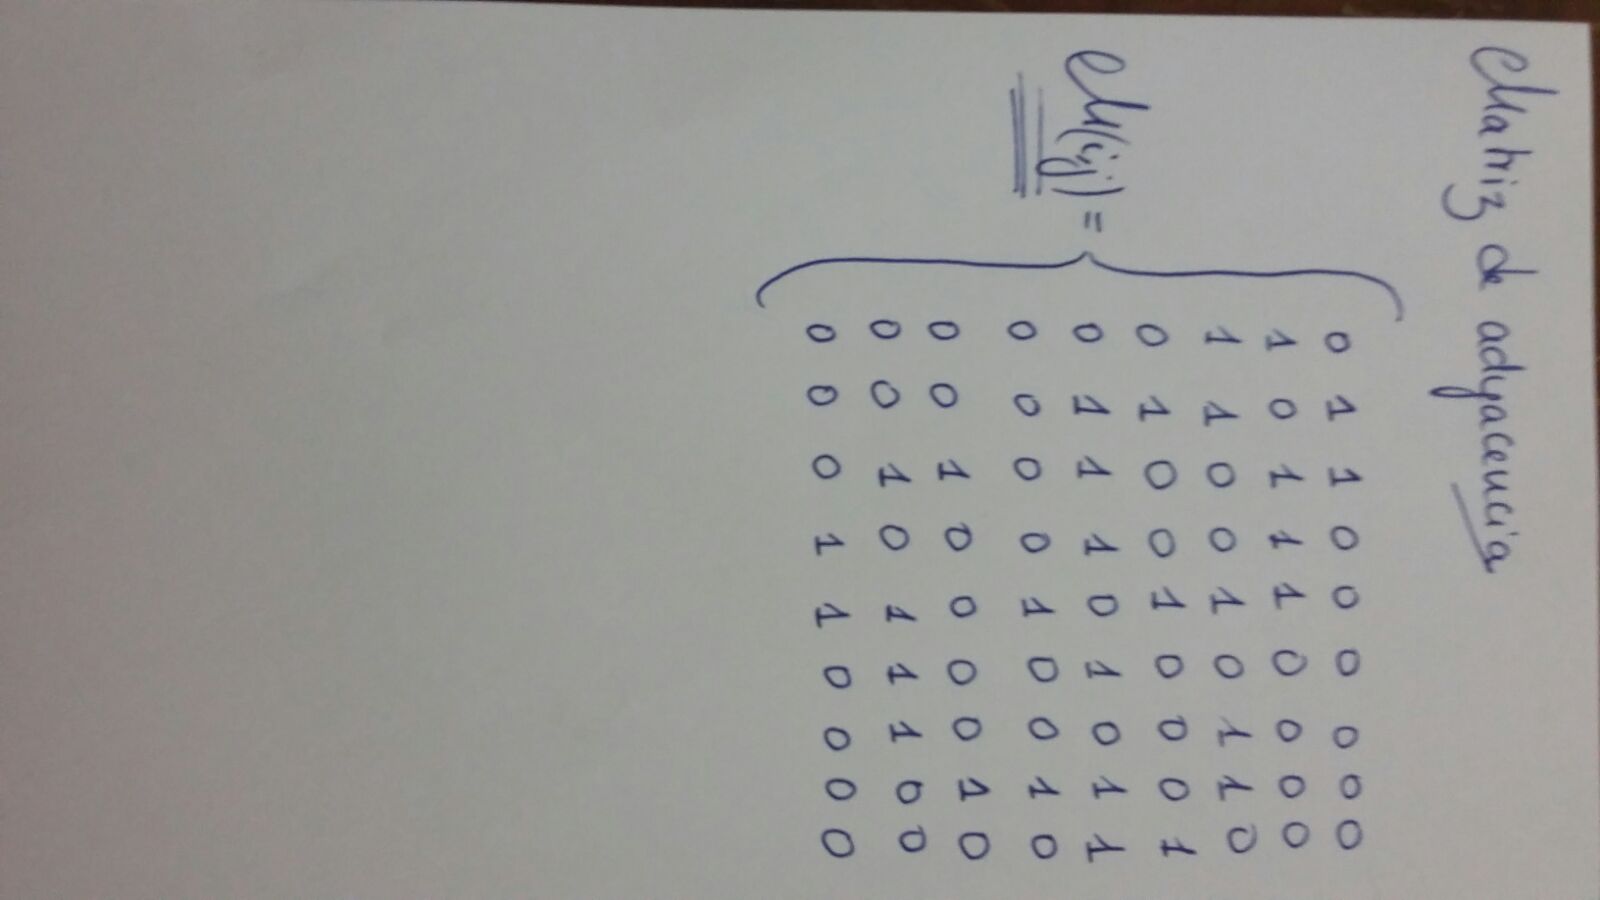 Matriz de adyacencia
0 1 1 0 0 0 0 0 0
1 0 1 1 1 0 0 0 0
1 1 0 0 1 0 1 1 0
0 1 0 0 1 0 0 0 1
M(i,j) = 0 1 1 1 0 1 0 1 1
0 0 0 0 1 0 0 1 0
0 0 1 0 0 0 0 1 0
0 0 1 0 1 1 1 0 0
0 0 0 1 1 0 0 0 0